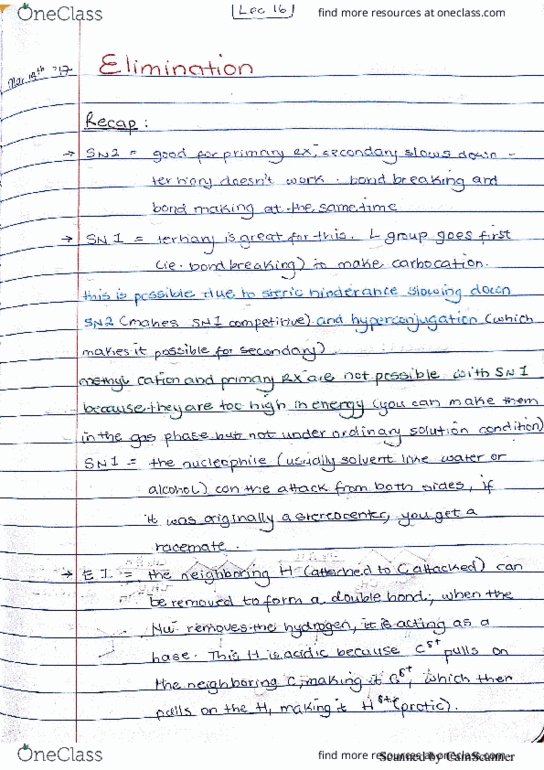 OneClass
Lec 16
find more resources at oneclass.com
Mar 14th '17
Elimination
Recap:
→ SN2 = good for primary RX, secondary slows down -
tertiary doesn't work. bond breaking and
bond making at the same time
→ SN1 = tertiary is great for this. L group goes first
(ie. bond breaking) to make carbocation.
this is possible due to steric hinderance slowing down
SN2 (makes SN1 competitive) and hyperconjugation (which
makes it possible for secondary)
methyl cation and primary RX are not possible with SN1
because they are too high in energy (you can make them
in the gas phase but not under ordinary solution condition)
SN1 = the nucleophile (usually solvent like water or
alcohol) can the attack from both sides, if
it was originally a stereocenter, you get a
racemate.
→ E1 = the neighboring H (attached to C attacked) can
be removed to form a double bond; when the
Nu⁻ removes the hydrogen, it is acting as a
base. This H is acidic because C δ+ pulls on
the neighboring C, making it C δ+, which then
pulls on the H, making it H δ+ (protic).
OneClass
find more resources at oneclass.com
Scanned by CamScanner